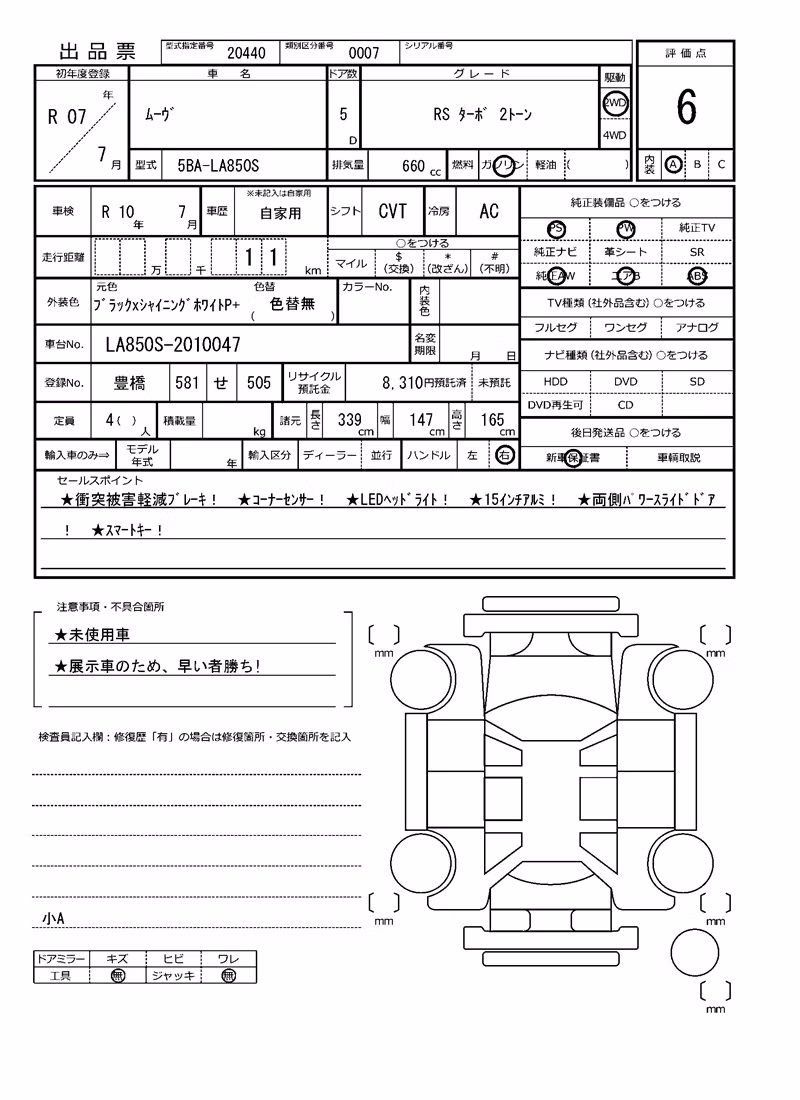 出品票 型式指定番号 20440 類別区分番号 0007 シリアル番号
評価点
6
内装 A B C
初年度登録 車名 ドア数 グレード 駆動
R 07 年 7 月 ﾑｰｳﾞ 5 D RS ﾀｰﾎﾞ 2ﾄｰﾝ 2WD
4WD
型式 5BA-LA850S 排気量 660 cc 燃料 ガソリン 軽油 ( )
車検 R 10 年 7 月 車歴 ※未記入は自家用 自家用 シフト CVT 冷房 AC
走行距離 万 千 1 1 km
○をつける
マイル $(交換) *(改ざん) #(不明)
外装色 元色 ﾌﾞﾗｯｸxｼｬｲﾆﾝｸﾞﾎﾜｲﾄP+ 色替 ( 色替無 ) カラーNo. 内装色
車台No. LA850S-2010047 名変期限 月 日
登録No. 豊橋 581 せ 505 リサイクル預託金 8,310円預託済 未預託
定員 4( ) 人 積載量 kg 諸元 長さ 339 cm 幅 147 cm 高さ 165 cm
輸入車のみ⇒ モデル年式 年 輸入区分 ディーラー 並行 ハンドル 左 右
純正装備品 ○をつける
PS PW 純正TV
純正ナビ 革シート SR
純正AW エアB ABS
TV種類(社外品含む)○をつける
フルセグ ワンセグ アナログ
ナビ種類(社外品含む)○をつける
HDD DVD SD
DVD再生可 CD
後日発送品 ○をつける
新車保証書 車輌取説
セールスポイント
★衝突被害軽減ﾌﾞﾚｰｷ! ★ｺｰﾅｰｾﾝｻｰ! ★LEDﾍｯﾄﾞﾗｲﾄ! ★15ｲﾝﾁｱﾙﾐ! ★両側ﾊﾟﾜｰｽﾗｲﾄﾞﾄﾞｱ
! ★ｽﾏｰﾄｷｰ!
注意事項・不具合箇所
★未使用車
★展示車のため、早い者勝ち!
検査員記入欄：修復歴「有」の場合は修復箇所・交換箇所を記入
小A
ドアミラー キズ ヒビ ワレ
工具 無 ジャッキ 無
〔 〕mm 〔 〕mm
〔 〕mm 〔 〕mm
〔 〕mm